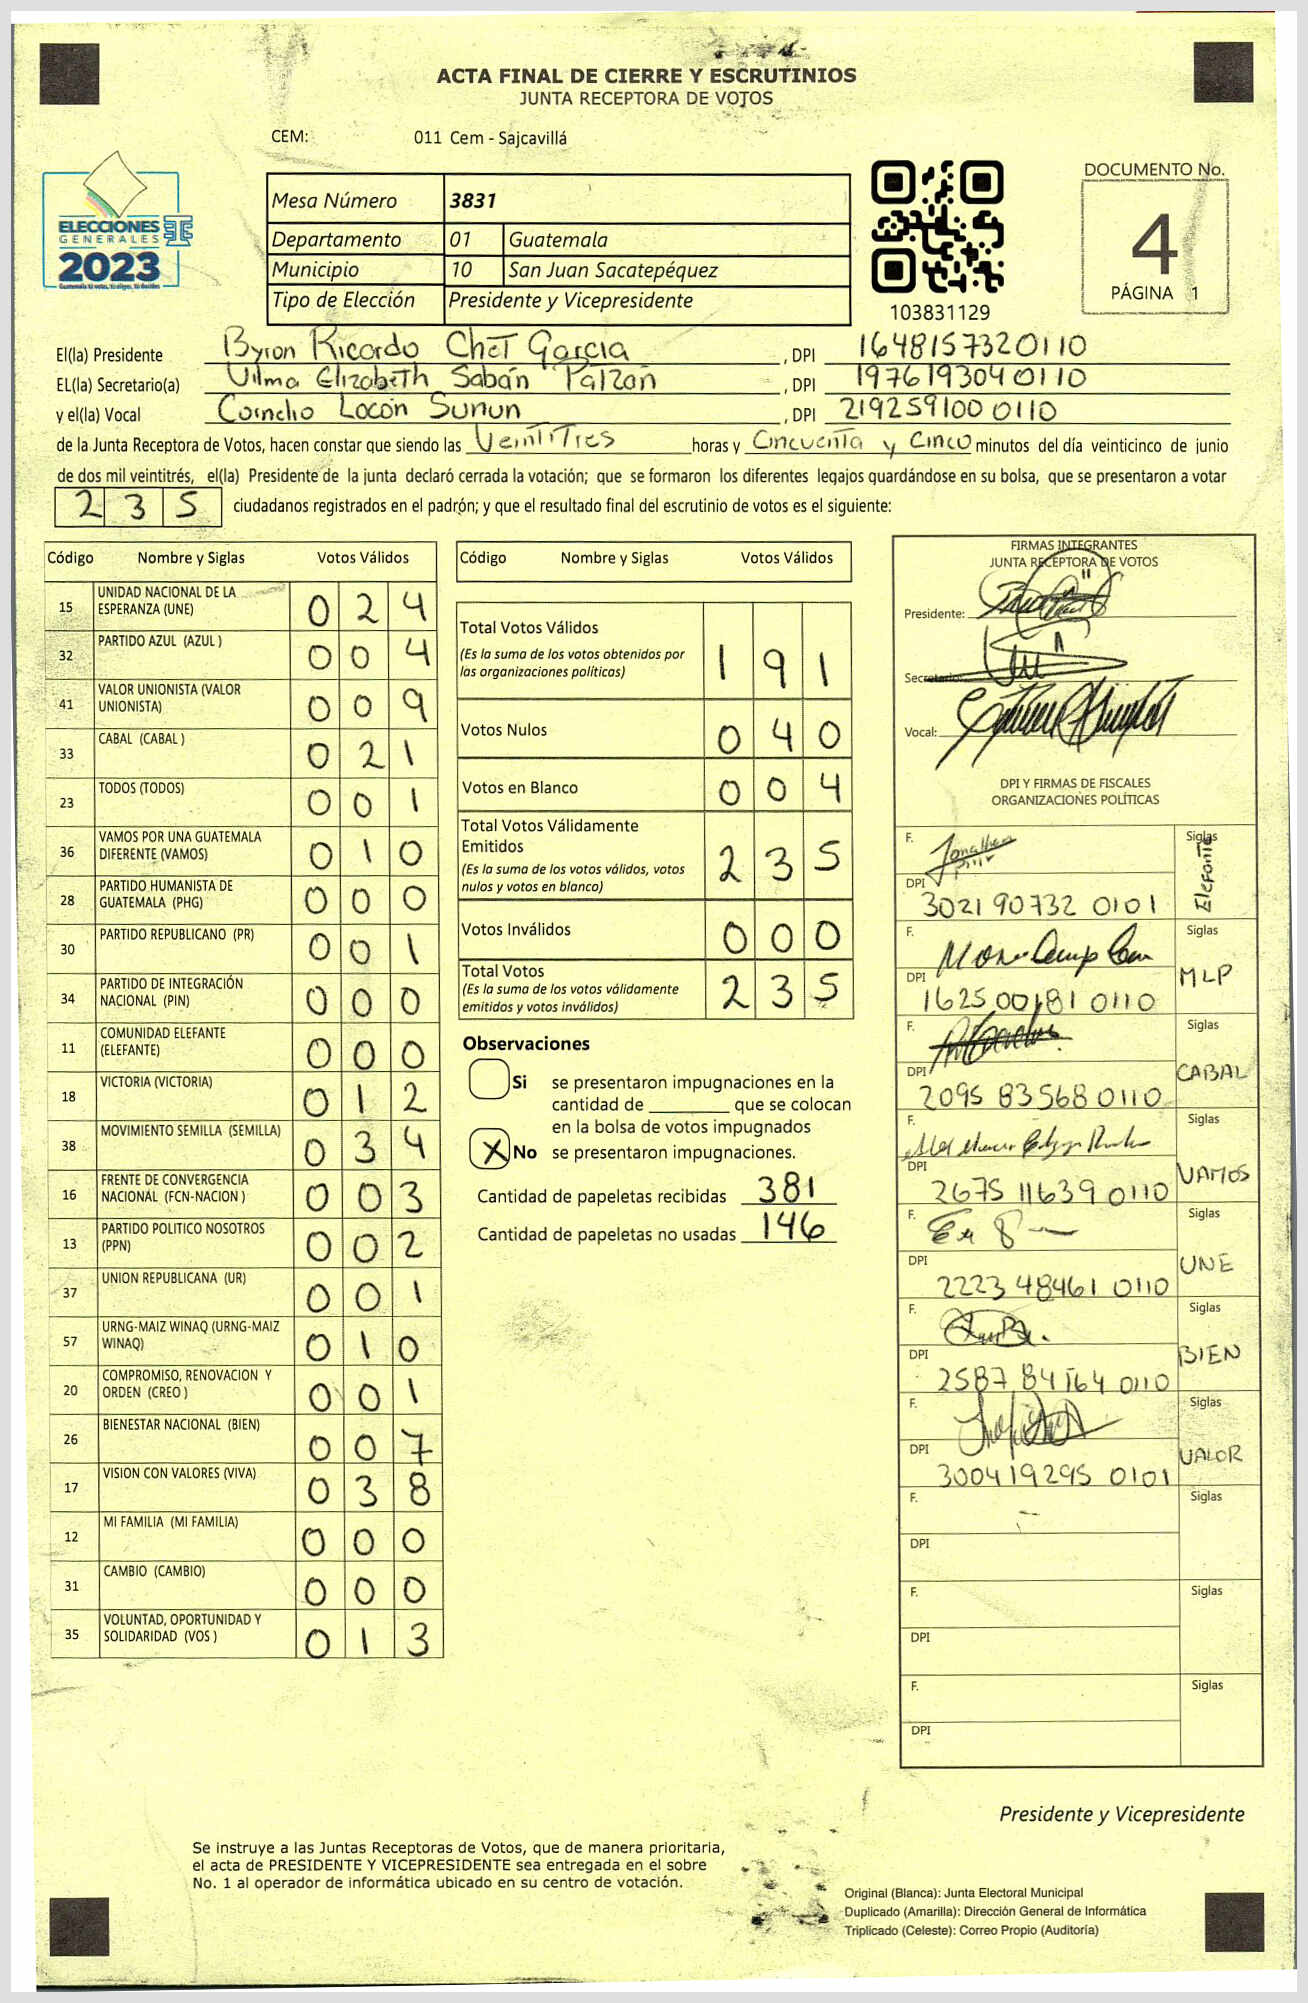 ACTA FINAL DE CIERRE Y ESCRUTINIOS
JUNTA RECEPTORA DE VOTOS
CEM: 011 Cem - Sajcavillá
ELECCIONES
GENERALES
2023
Mesa Número 3831
Departamento 01 Guatemala
Municipio 10 San Juan Sacatepéquez
Tipo de Elección Presidente y Vicepresidente
103831129
DOCUMENTO No.
4
PÁGINA 1
El(la) Presidente Byron Ricardo Chet Garcia , DPI 1648157320110
EL(la) Secretario(a) Vilma Elizabeth Sabán Patzán , DPI 1976193040110
y el(la) Vocal Locón Sunun , DPI 2192591000110
de la Junta Receptora de Votos, hacen constar que siendo las Veintitres horas y Cincuenta y Cinco minutos del día veinticinco de junio
de dos mil veintitrés, el(la) Presidente de la junta declaró cerrada la votación; que se formaron los diferentes legajos guardándose en su bolsa, que se presentaron a votar
235 ciudadanos registrados en el padrón; y que el resultado final del escrutinio de votos es el siguiente:
Código Nombre y Siglas Votos Válidos
15 UNIDAD NACIONAL DE LA ESPERANZA (UNE) 024
32 PARTIDO AZUL (AZUL ) 004
41 VALOR UNIONISTA (VALOR UNIONISTA) 009
33 CABAL (CABAL ) 021
23 TODOS (TODOS) 001
36 VAMOS POR UNA GUATEMALA DIFERENTE (VAMOS) 010
28 PARTIDO HUMANISTA DE GUATEMALA (PHG) 000
30 PARTIDO REPUBLICANO (PR) 001
34 PARTIDO DE INTEGRACIÓN NACIONAL (PIN) 000
11 COMUNIDAD ELEFANTE (ELEFANTE) 000
18 VICTORIA (VICTORIA) 012
38 MOVIMIENTO SEMILLA (SEMILLA) 034
16 FRENTE DE CONVERGENCIA NACIONAL (FCN-NACION ) 003
13 PARTIDO POLITICO NOSOTROS (PPN) 002
37 UNION REPUBLICANA (UR) 001
57 URNG-MAIZ WINAQ (URNG-MAIZ WINAQ) 010
20 COMPROMISO, RENOVACION Y ORDEN (CREO ) 001
26 BIENESTAR NACIONAL (BIEN) 007
17 VISION CON VALORES (VIVA) 038
12 MI FAMILIA (MI FAMILIA) 000
31 CAMBIO (CAMBIO) 000
35 VOLUNTAD, OPORTUNIDAD Y SOLIDARIDAD (VOS ) 013
Código Nombre y Siglas Votos Válidos
Total Votos Válidos 191
(Es la suma de los votos obtenidos por
las organizaciones políticas)
Votos Nulos 040
Votos en Blanco 004
Total Votos Válidamente
Emitidos 235
(Es la suma de los votos válidos, votos
nulos y votos en blanco)
Votos Inválidos 000
Total Votos 235
(Es la suma de los votos válidamente
emitidos y votos inválidos)
Observaciones
Si se presentaron impugnaciones en la
cantidad de ________ que se colocan
en la bolsa de votos impugnados
X No se presentaron impugnaciones.
Cantidad de papeletas recibidas 381
Cantidad de papeletas no usadas 146
FIRMAS INTEGRANTES
JUNTA RECEPTORA DE VOTOS
Presidente:
Secretario:
Vocal:
DPI Y FIRMAS DE FISCALES
ORGANIZACIONES POLÍTICAS
F. Siglas
DPI 3021 90732 0101 Elefante
F. Siglas
DPI 1625 00181 0110 MLP
F. Siglas
DPI 2095 83568 0110 CABAL
F. Siglas
DPI 2675 11639 0110 VAMOS
F. Siglas
DPI 2223 48461 0110 UNE
F. Siglas
DPI 2587 84164 0110 BIEN
F. Siglas
DPI 300419295 0101 VALOR
F. Siglas
DPI
F. Siglas
DPI
F. Siglas
DPI
Presidente y Vicepresidente
Se instruye a las Juntas Receptoras de Votos, que de manera prioritaria,
el acta de PRESIDENTE Y VICEPRESIDENTE sea entregada en el sobre
No. 1 al operador de informática ubicado en su centro de votación.
Original (Blanca): Junta Electoral Municipal
Duplicado (Amarilla): Dirección General de Informática
Triplicado (Celeste): Correo Propio (Auditoría)